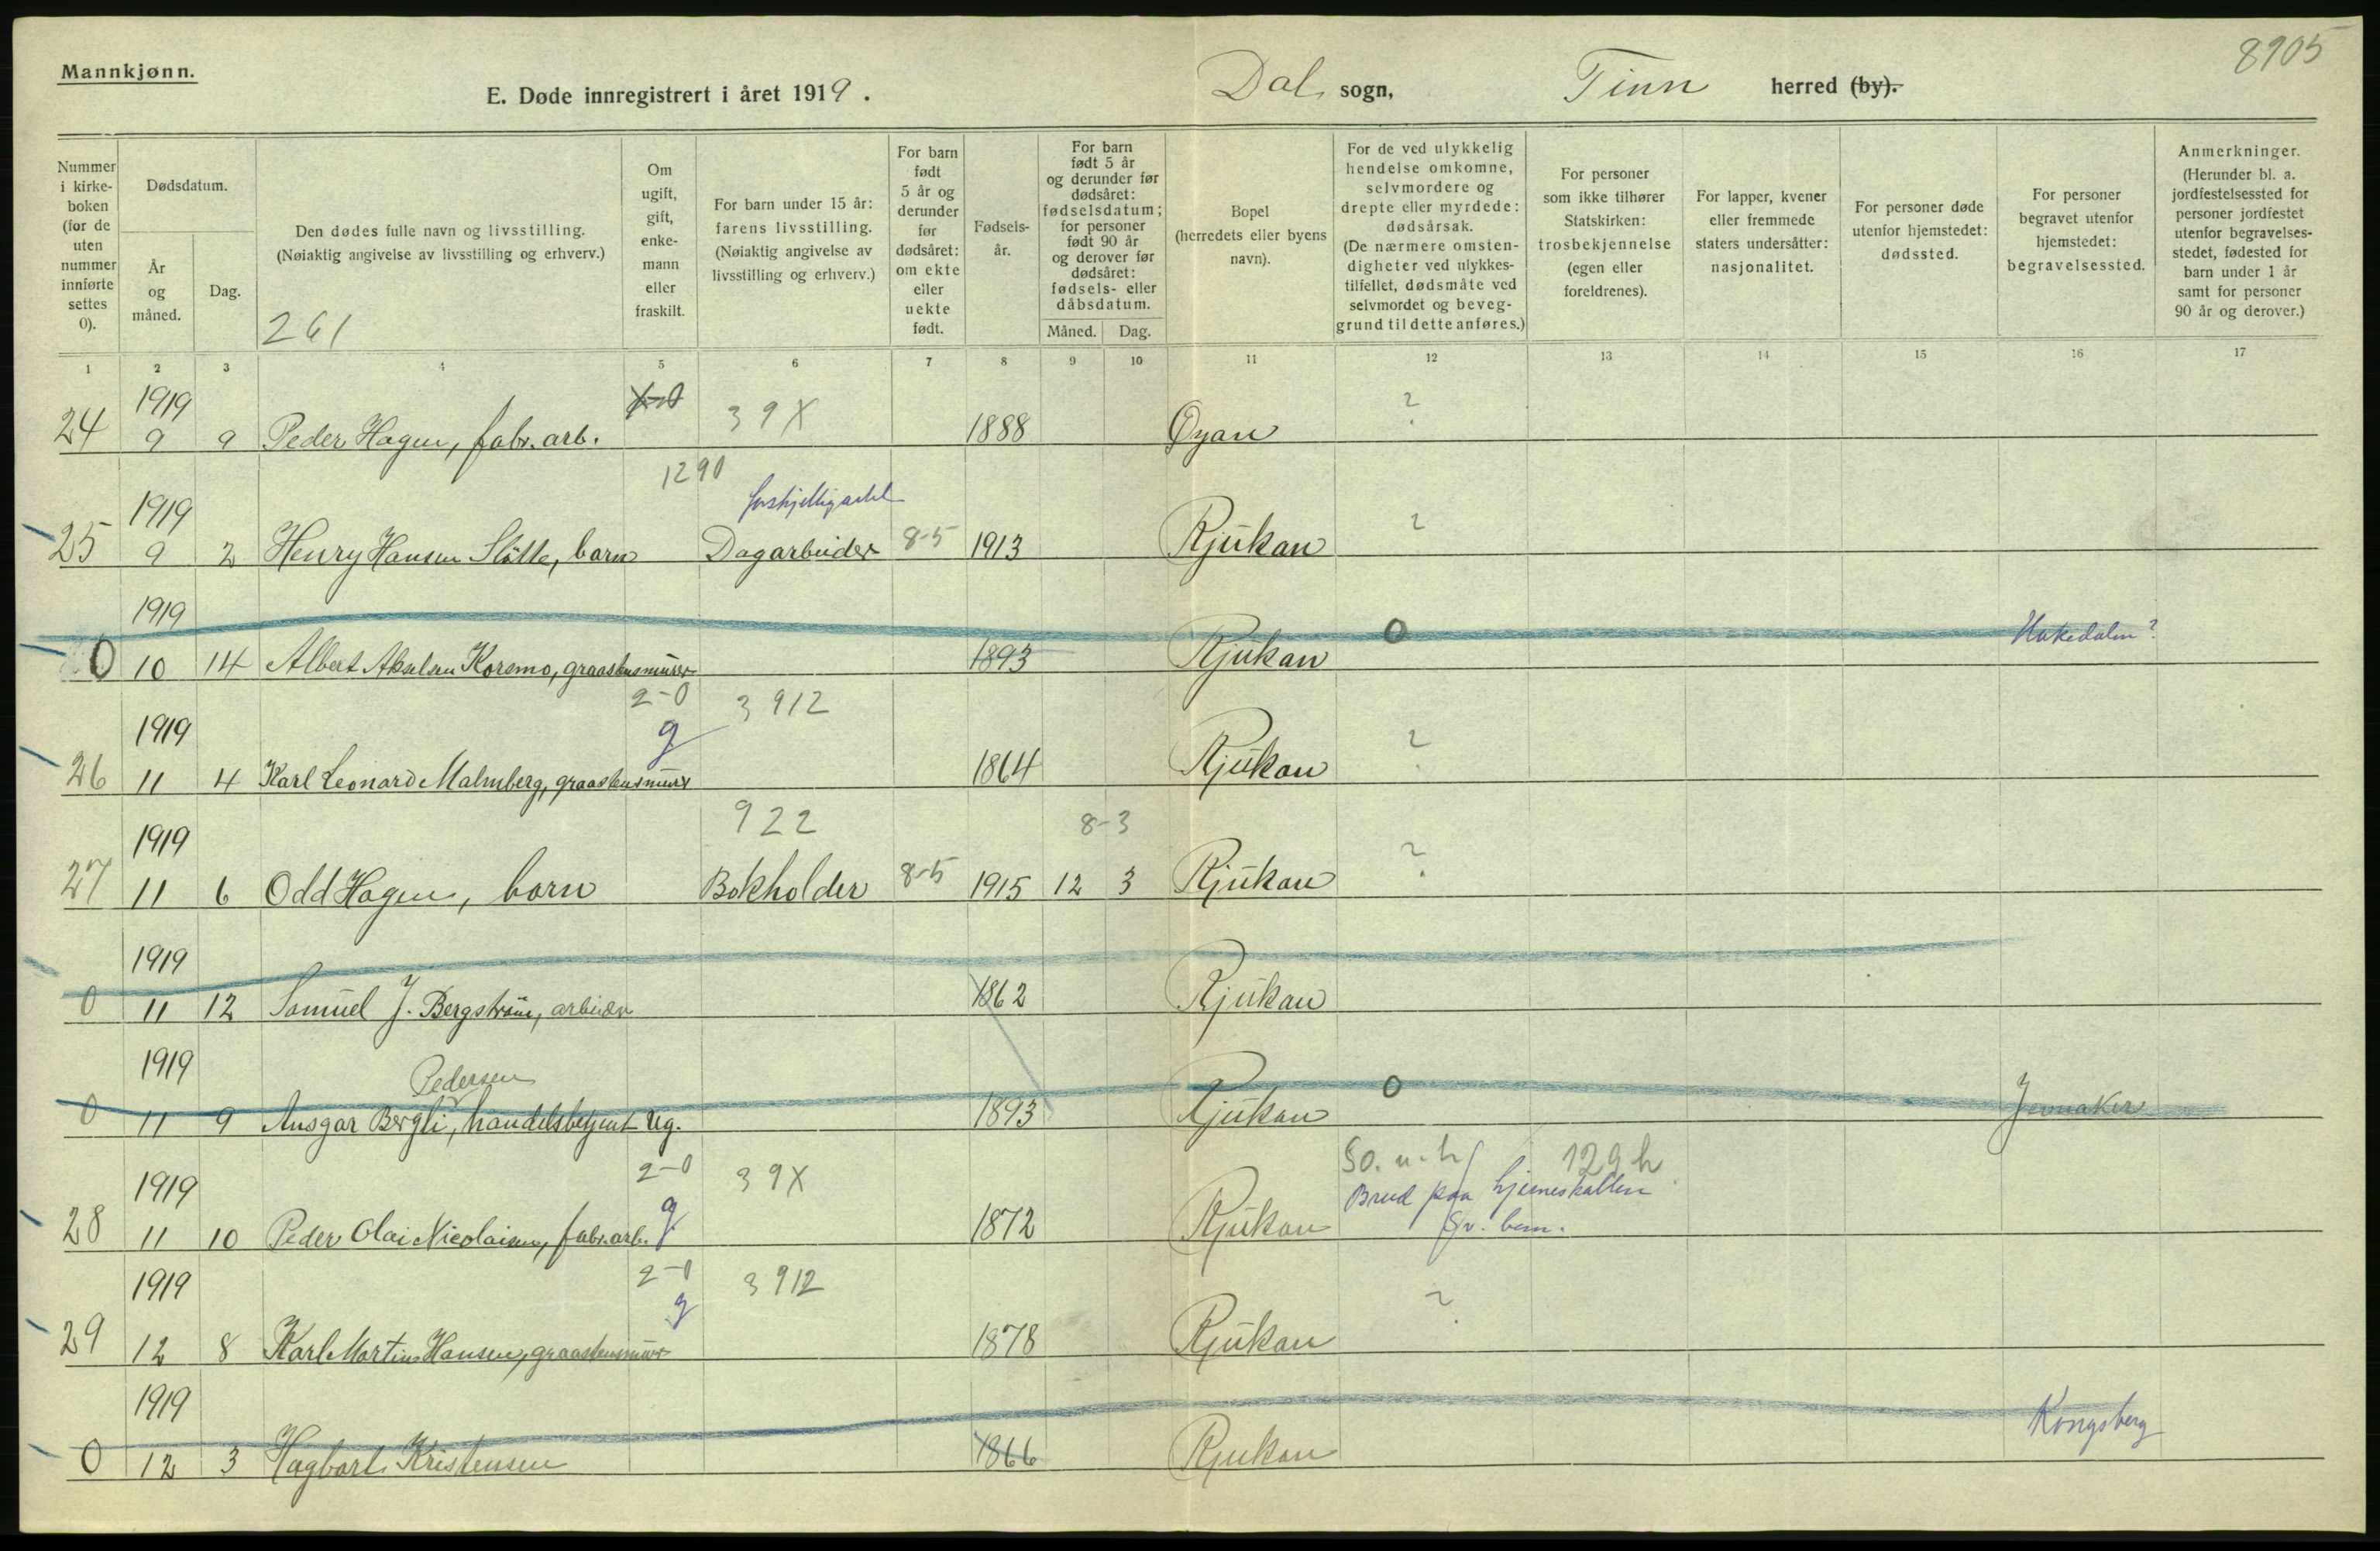 8905
Mannkjønn.
E. Døde innregistrert i året 1919.
Dal sogn,
Tinn herred (by).
Nummer i kirkeboken (for de uten nummer innførte settes 0).
Dødsdatum.
År og måned.
Dag.
Den dødes fulle navn og livsstilling.
(Nøiaktig angivelse av livsstilling og erhverv.)
261
Om ugift, gift, enkemann eller fraskilt.
For barn under 15 år: farens livsstilling.
(Nøiaktig angivelse av livsstilling og erhverv.)
For barn født 5 år og derunder før dødsåret: om ekte eller uekte født.
Fødselsår.
For barn født 5 år og derunder før dødsåret: fødselsdatum; for personer født 90 år og derover før dødsåret: fødsels- eller dåbsdatum.
Måned. Dag.
Bopel
(herredets eller byens navn).
For de ved ulykkelig hendelse omkomne, selvmordere og drepte eller myrdede: dødsårsak.
(De nærmere omstendigheter ved ulykkestilfellet, dødsmåte ved selvmordet og beveggrund til dette anføres.)
For personer som ikke tilhører Statskirken: trosbekjennelse (egen eller foreldrenes).
For lapper, kvener eller fremmede staters undersåtter: nasjonalitet.
For personer døde utenfor hjemstedet: dødssted.
For personer begravet utenfor hjemstedet: begravelsessted.
Anmerkninger.
(Herunder bl. a. jordfestelsessted for personer jordfestet utenfor begravelsesstedet, fødested for barn under 1 år samt for personer 90 år og derover.)
1 2 3 4 5 6 7 8 9 10 11 12 13 14 15 16 17
1919 39X ?
24 9 9 Peder Hagen, fabr. arb. 1888 Øyan
1290
1919 ?
25 9 2 Henry Hansen Slåtte, barn Dagarbeider 8-5 1913 Rjukan
1919 0 Hakedalen?
0 10 14 Albert Akselsen Korsmo, graastensmurer 1893 Rjukan
2-0 3912
1919 g ?
26 11 4 Karl Leonard Malmberg, graastensmurer 1864 Rjukan
922 8-3
1919 ?
27 11 6 Odd Hagen, barn Bokholder 8-5 1915 12 3 Rjukan
1919
0 11 12 Samuel J. Bergström, arbeider 1862 Rjukan
1919 Pedersen 0 Jevnaker
0 11 9 Ansgar Bergli, handelsbetjent ug. 1893 Rjukan
2-0 39X 129 h
1919 g Brud paa hjerneskallen
28 11 10 Peder Olai Nicolaisen, fabr. arb. 1872 Rjukan
2-0 3912
1919 g ?
29 12 8 Karl Martin Hansen, graastensmurer 1878 Rjukan
1919 Kongsberg
0 12 3 Hagbart Kristensen 1866 Rjukan